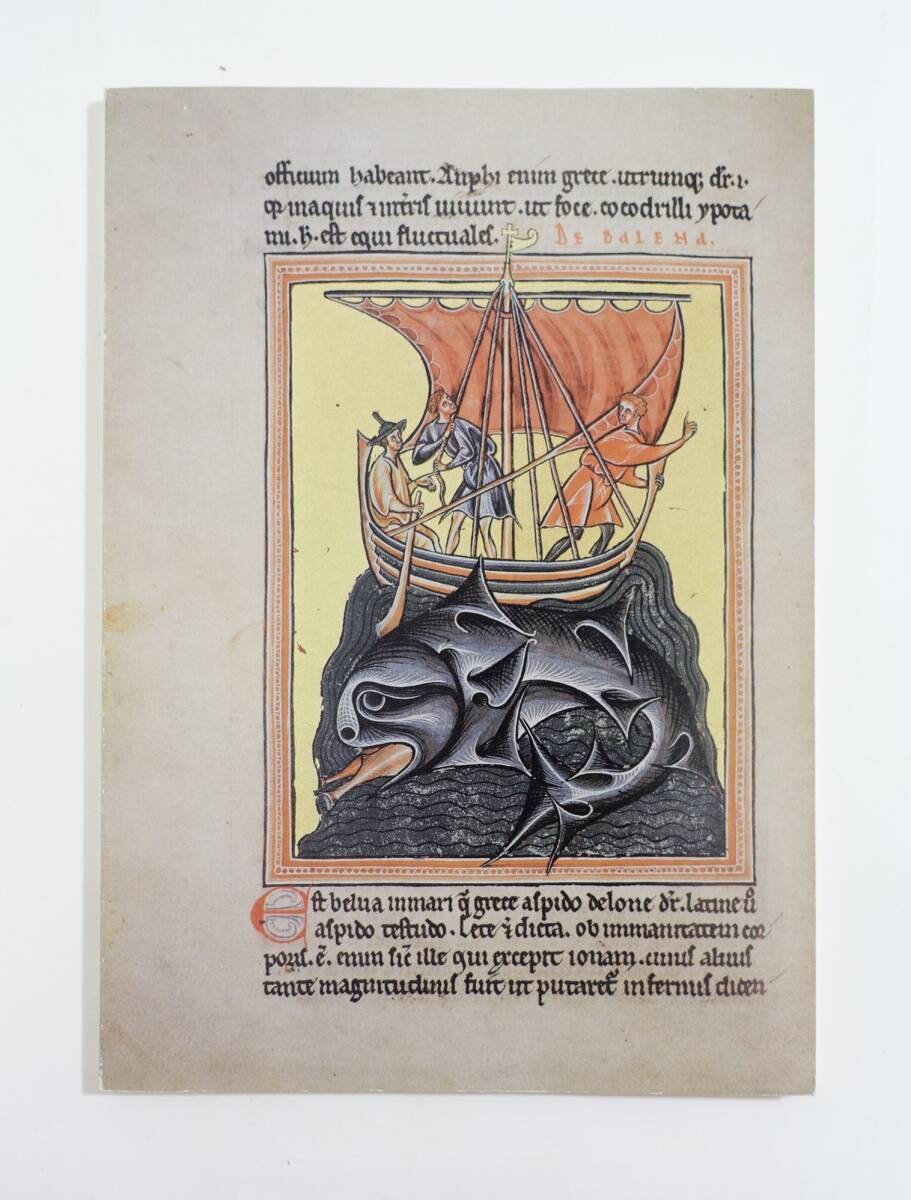 officium habeant. Amphi enim grece. utrumq; dr̄. i.
qꝛ in aquis ⁊ in tr̄is uiuunt. ut foce. cocodrilli ypota
mi. h̄. est equi fluctuales. DE BALENA.
Est belua in mari q̄ grece aspido delone dr̄. latine ū
aspido testudo. Cete ⁊ dicta. ob immanitatem cor
poris. ē. enim sic̄ ille qui excepit ionam. cuius aluus
tante magnitudinis fuit ut putaret᷑ infernus dicen